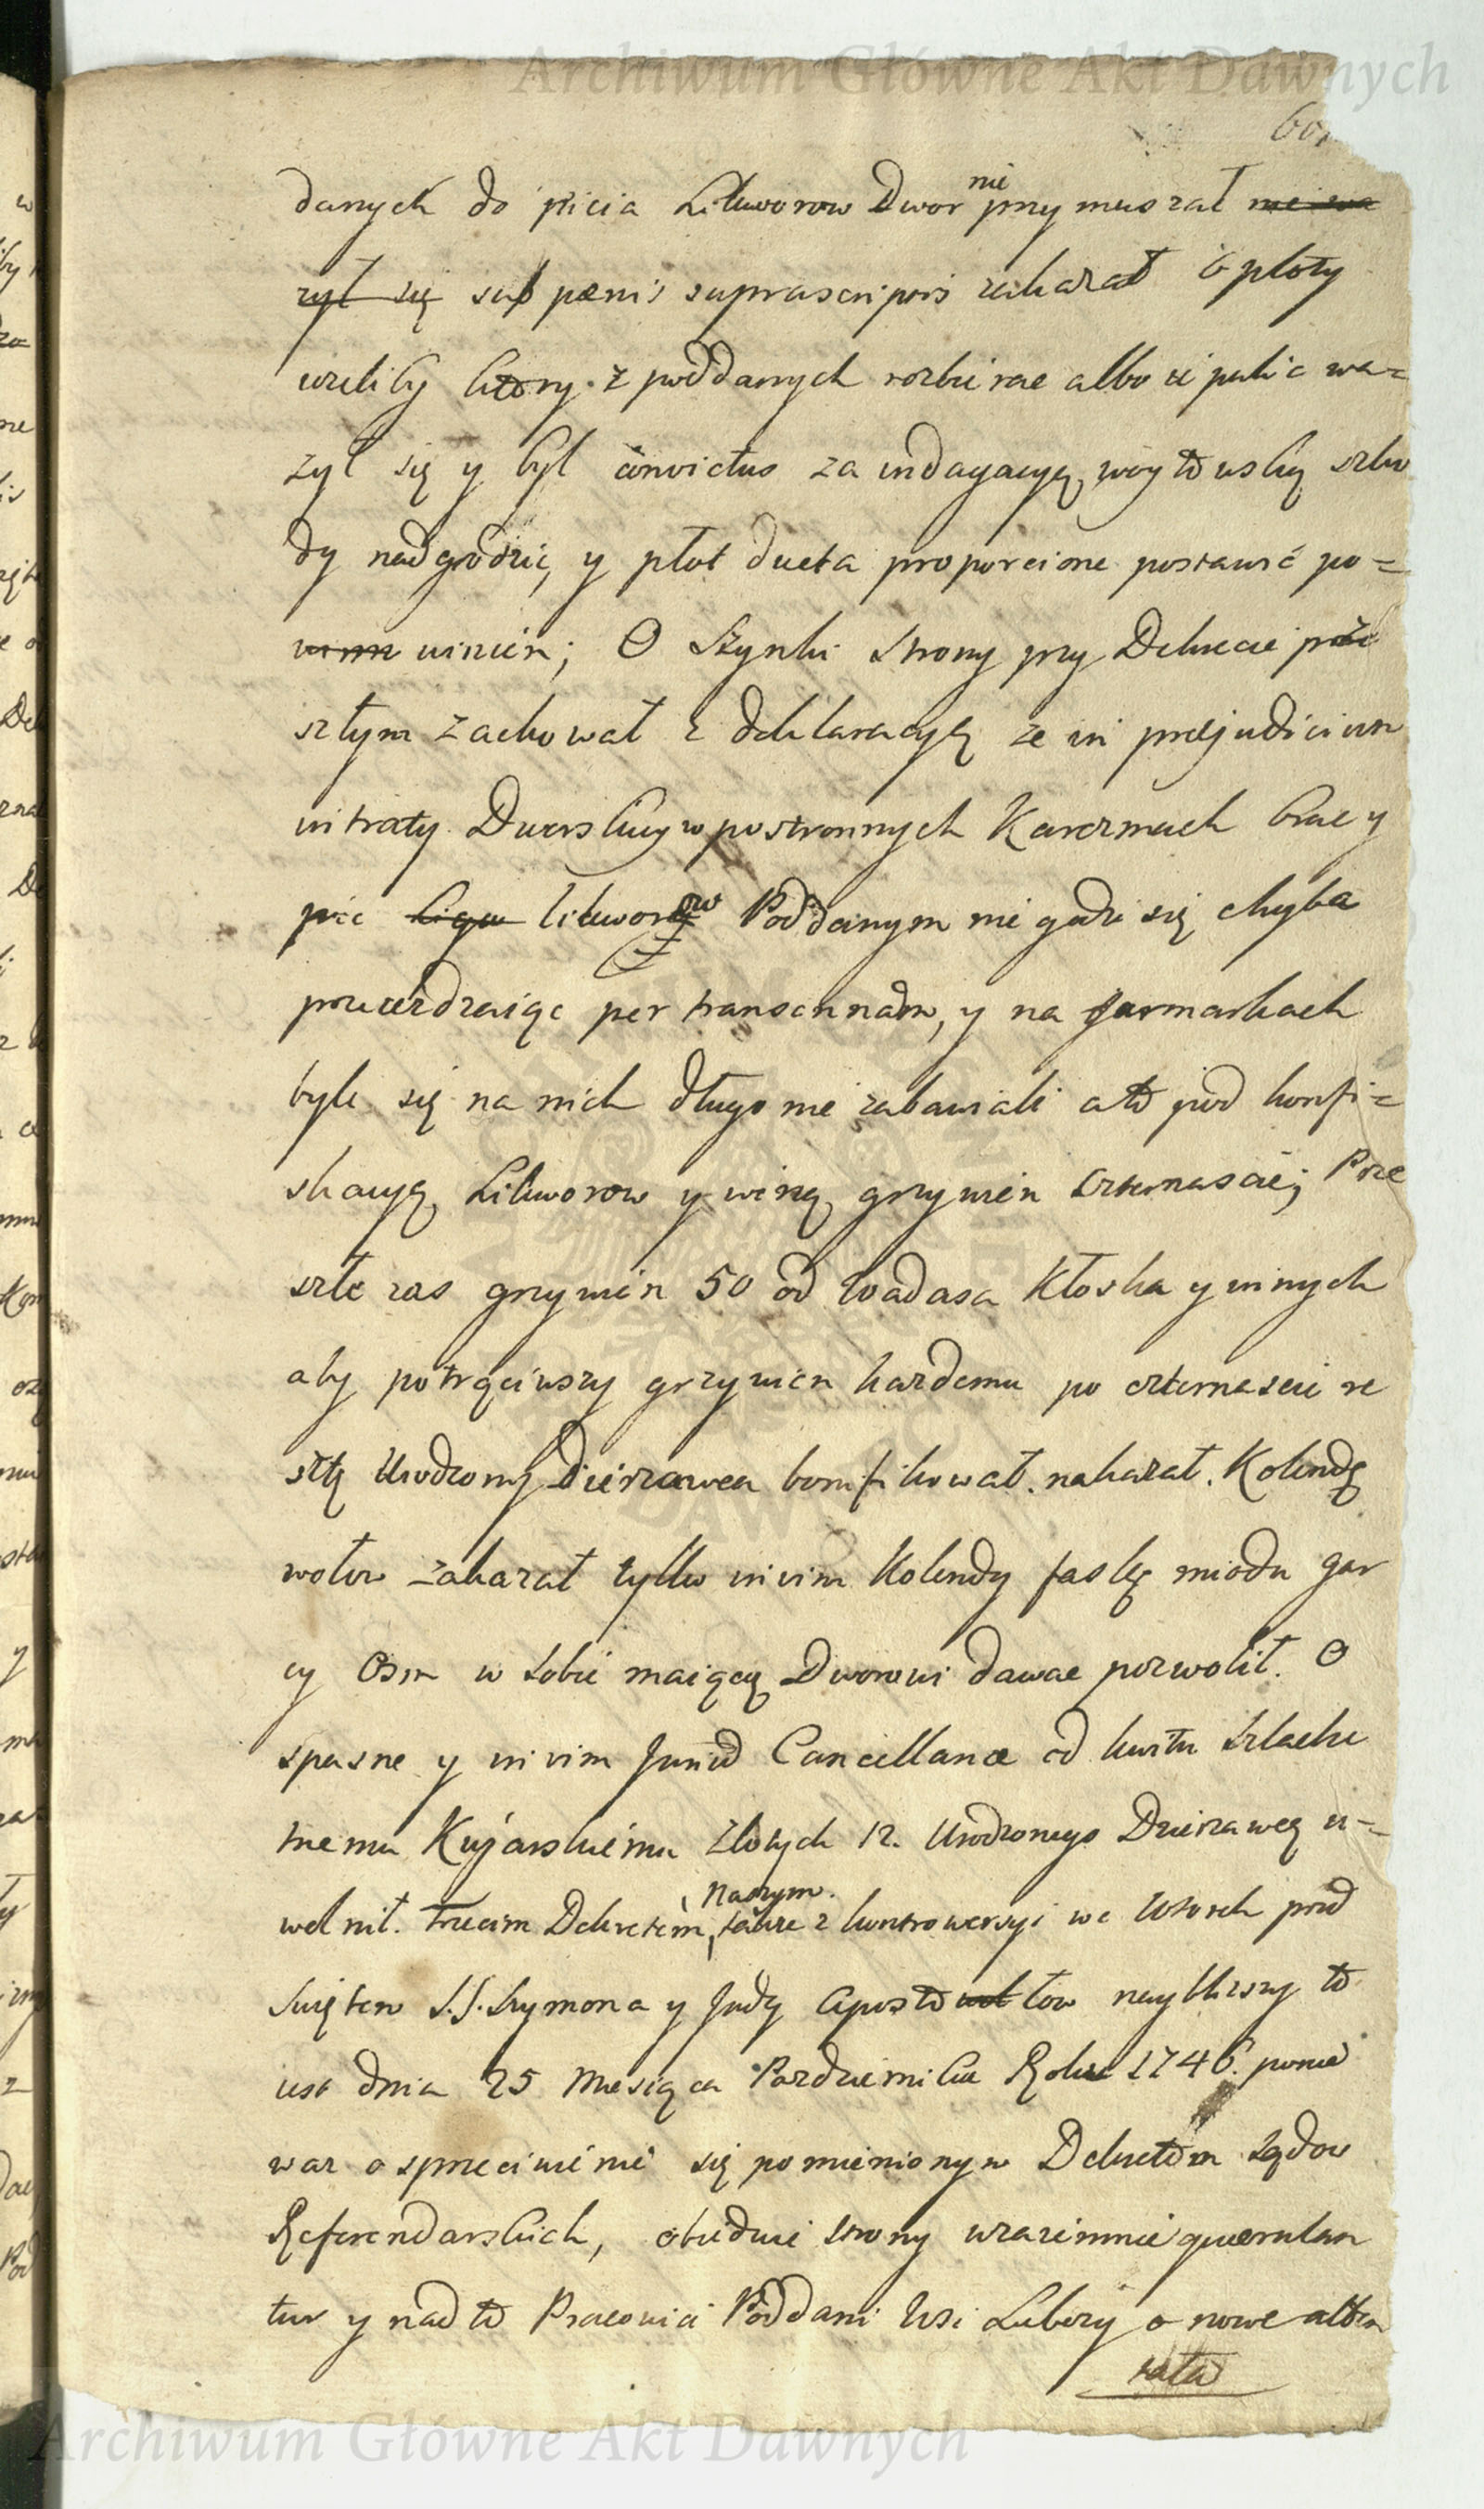 Archiwum Główne Akt Dawnych
danych do picia Likworow Dwor nie przymuszał nie wa
zył się sub pœnis suprascriptis zakazał o płoty
ieżeliby ktory z poddanych rozbierac albo ie palic wa=
zył się y był convictus za indagacyą woytowską szko
dy nadgrodzic, y płot ducta proporcione postawić po=
winn winien; O Szynki Strony przy Dekrecie prze
szłym zachował z deklaracyą ze in præjudicium
intraty Dworskiey w postronnych Karczmach brac y
pic likworow Poddanym nie godzi się chyba
przeieżdzaiąc per transennam, y na Jarmarkach
byle się na nich długo nie zabawiali a to pod konfi=
skacyą Likworow y winą grzywien czternascie; Prze
szłe zas grzywien 50 od Wadasa Kłoska y innych
aby potrąciwszy grzywien kazdemu po czternascie re
sztę Urodzony Dzierzawca bonifikował nakazał. Kolendę
wołow zakazał tylko in vim Kolendy faskę miodu gar
cy Osm w sobie maiącą Dworowi dawac pozwolił. O
spasne y in vim Juris Cancellariæ od kwitu szlache
tnemu Kujawskiemu Złotych 12. Urodzonego Dzierzawcę u=
wolnił. Trzecim Dekretem Naszym, takze z kontrowersyi we Wtorek przed
Swiętem S.S. Szymona y Judy Apostołow nayblizszy to
iest dnia 25 Miesiąca Pazdziernika Roku 1746. ponie
waz o sprzeciwienie się pomienionym Dekretom Sądow
Referendarskich, obiedwie strony wzaiemnie querulan
tur y nad to Pracowici Poddani Wsi Luborzy o nowe